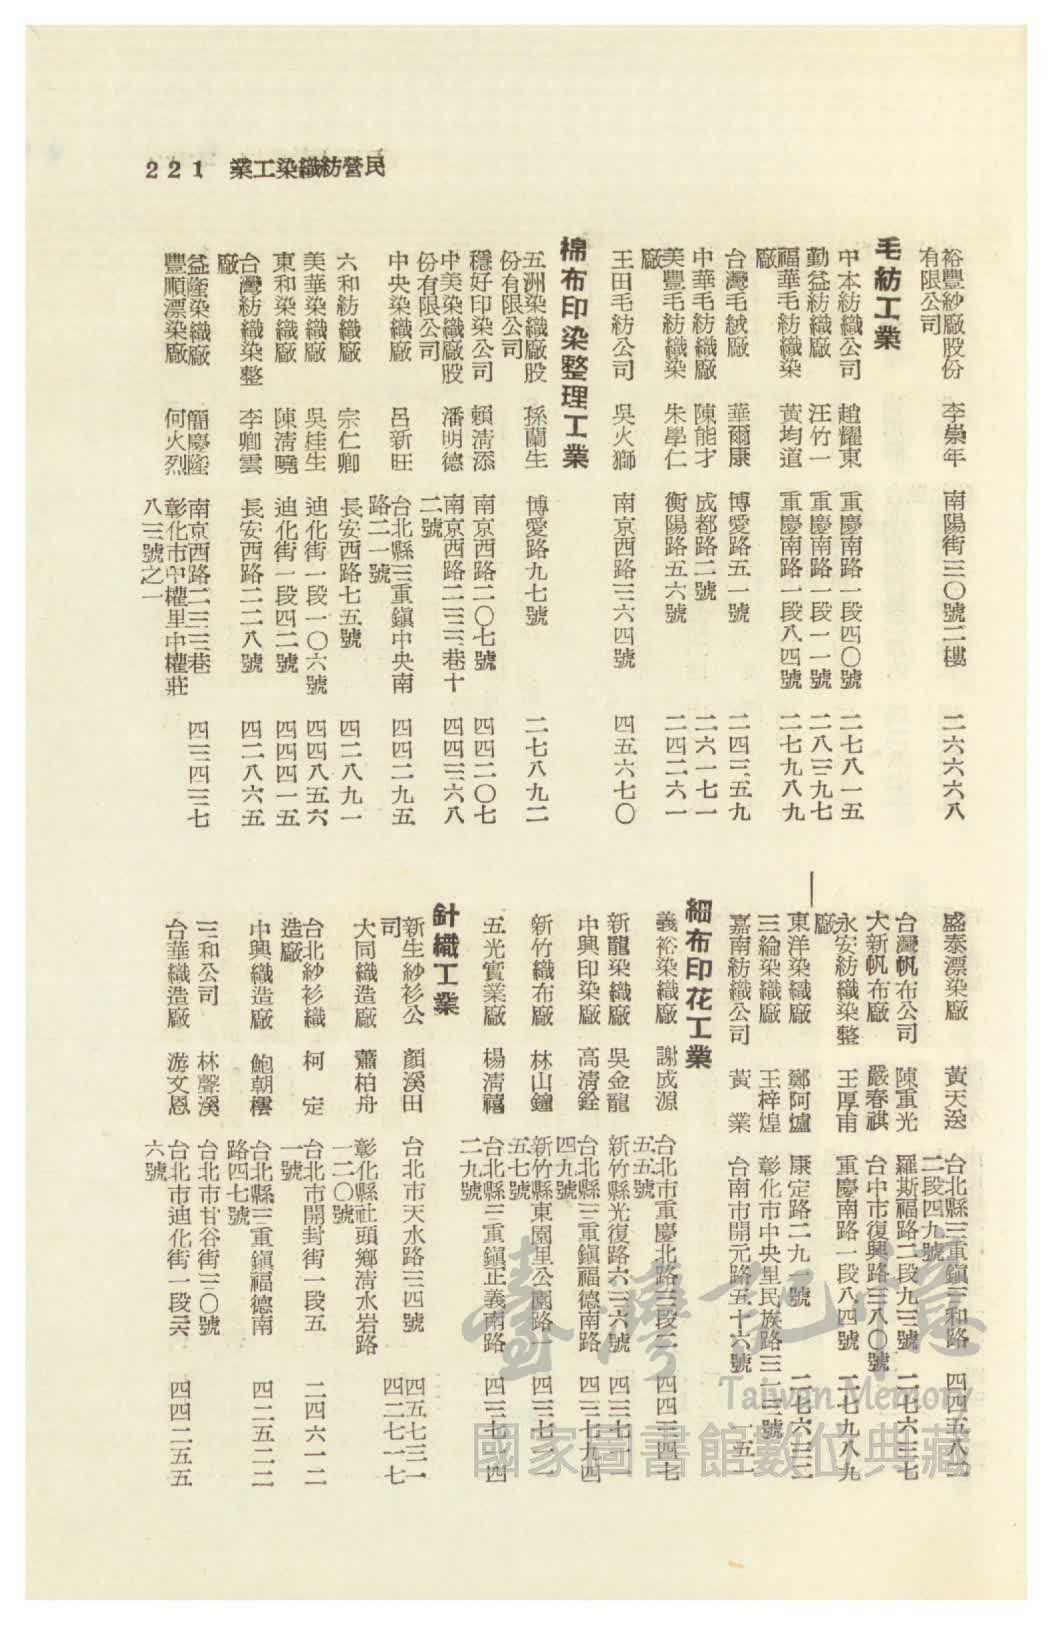 業工染織紡營民　221
裕豐紗廠股份有限公司　李崇年　南陽街三〇號二樓　二六六六八
毛紡工業
中本紡織公司　趙耀東　重慶南路一段四〇號　二七八一五
勤益紡織廠　汪竹一　重慶南路一段一一號　二八三九七
福華毛紡織染廠　黃均道　重慶南路一段八四號　二七九八九
台灣毛絨廠　華爾康　博愛路五一號　二四三五九
中華毛紡織廠　陳能才　成都路二號　二六一七一
美豐毛紡織染廠　朱學仁　衡陽路五六號　二四二六一
王田毛紡公司　吳火獅　南京西路三六四號　四五六七〇
棉布印染整理工業
五洲染織廠股份有限公司　孫蘭生　博愛路九七號　二七八九二
穩好印染公司　賴清添　南京西路二〇七號　四四二〇七
中美染織廠股份有限公司　潘明德　南京西路二三三巷十二號　四四三六八
中央染織廠　呂新旺　台北縣三重鎮中央南路二一號　四四二九五
六和紡織廠　宗仁卿　長安西路七五號　四二八九一
美華染織廠　吳桂生　迪化街一段一〇六號　四四八五六
東和染織廠　陳清曉　迪化街一段四二號　四四四一五
台灣紡織染整廠　李卿雲　長安西路二二八號　四二八六五
益隆染織廠　簡慶隆　南京西路二三三巷　四三四三七
豐順漂染廠　何火烈　彰化市中權里中權莊八三號之一
盛泰漂染廠　黃天送　台北縣三重鎮三和路二段四九號　四四五八三
台灣帆布公司　陳重光　羅斯福路二段九三號　二七六三七
大新帆布廠　嚴春祺　台中市復興路三八〇號
永安紡織染整廠　王厚甫　重慶南路一段八四號　二七九八九
東洋染織廠　鄭阿爐　康定路二九號　二七六三三
三綸染織廠　王梓煌　彰化市中央里民族路三二三號
嘉南紡織公司　黃　業　台南市開元路五十六號　一五一
細布印花工業
義裕染織廠　謝成源　台北市重慶北路三段二五五號　四四三四七
新龍染織廠　吳金龍　新竹縣光復路六三六號　四三七一
中興印染廠　高清銓　台北縣三重鎮福德南路四九號　四三七九四
新竹織布廠　林山鐘　新竹縣東園里公園路一五七號　四三七一
五光實業廠　楊清禧　台北縣三重鎮正義南路二九號　四三七四四
針織工業
新生紗衫公司　顏溪田　台北市天水路三四號　四五七三一　四二七一七
大同織造廠　蕭柏舟　彰化縣社頭鄉清水岩路一二〇號
台北紗衫織造廠　柯　定　台北市開封街一段五一號　二四六一二
中興織造廠　鮑朝橒　台北縣三重鎮福德南路四七號　四二五二二
三和公司　林馨溪　台北市甘谷街三〇號
台華織造廠　游文恩　台北市迪化街一段二六六號　四四二五五
臺灣記憶
Taiwan Memory
國家圖書館數位典藏